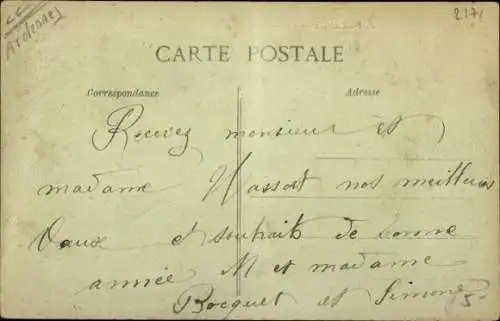 Ardennes
2171
CARTE POSTALE
Correspondance Adresse
Recevez monsieur et
madame Hassort nos meilleurs
Vaux et souhaits de bonne
année M et madame
Bocquet et Simone